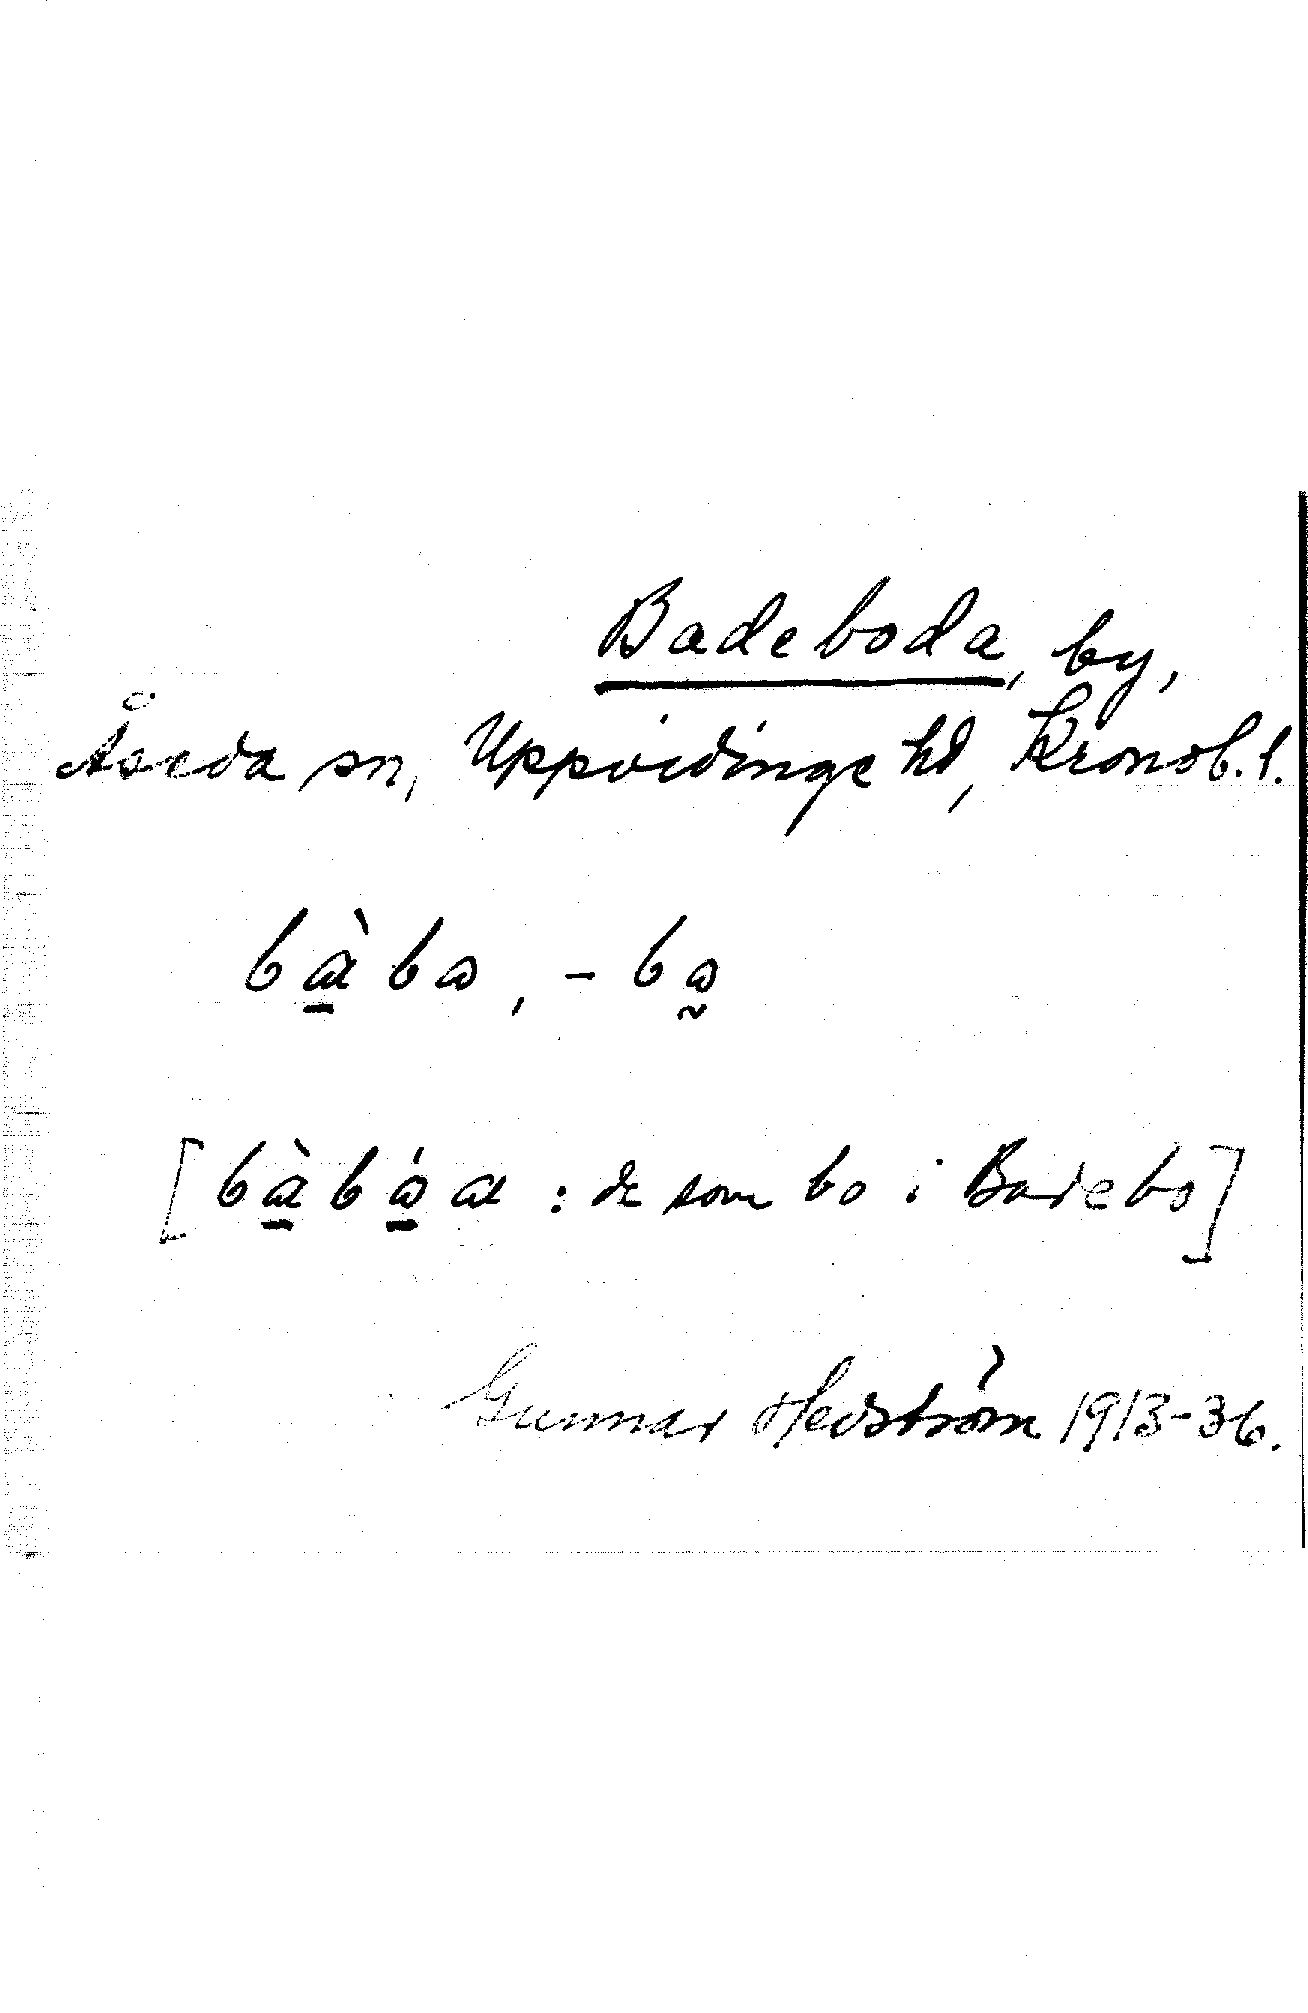 Badeboda, by,
Åseda sn, Uppvidinge hd, Kronob. l.
bɑ̱̀bɷ, -bɷ̰
[bɑ̱̀bɷ̱́ɑ : de som bo i Badebo]
Gunnar Hedström 1913-36.